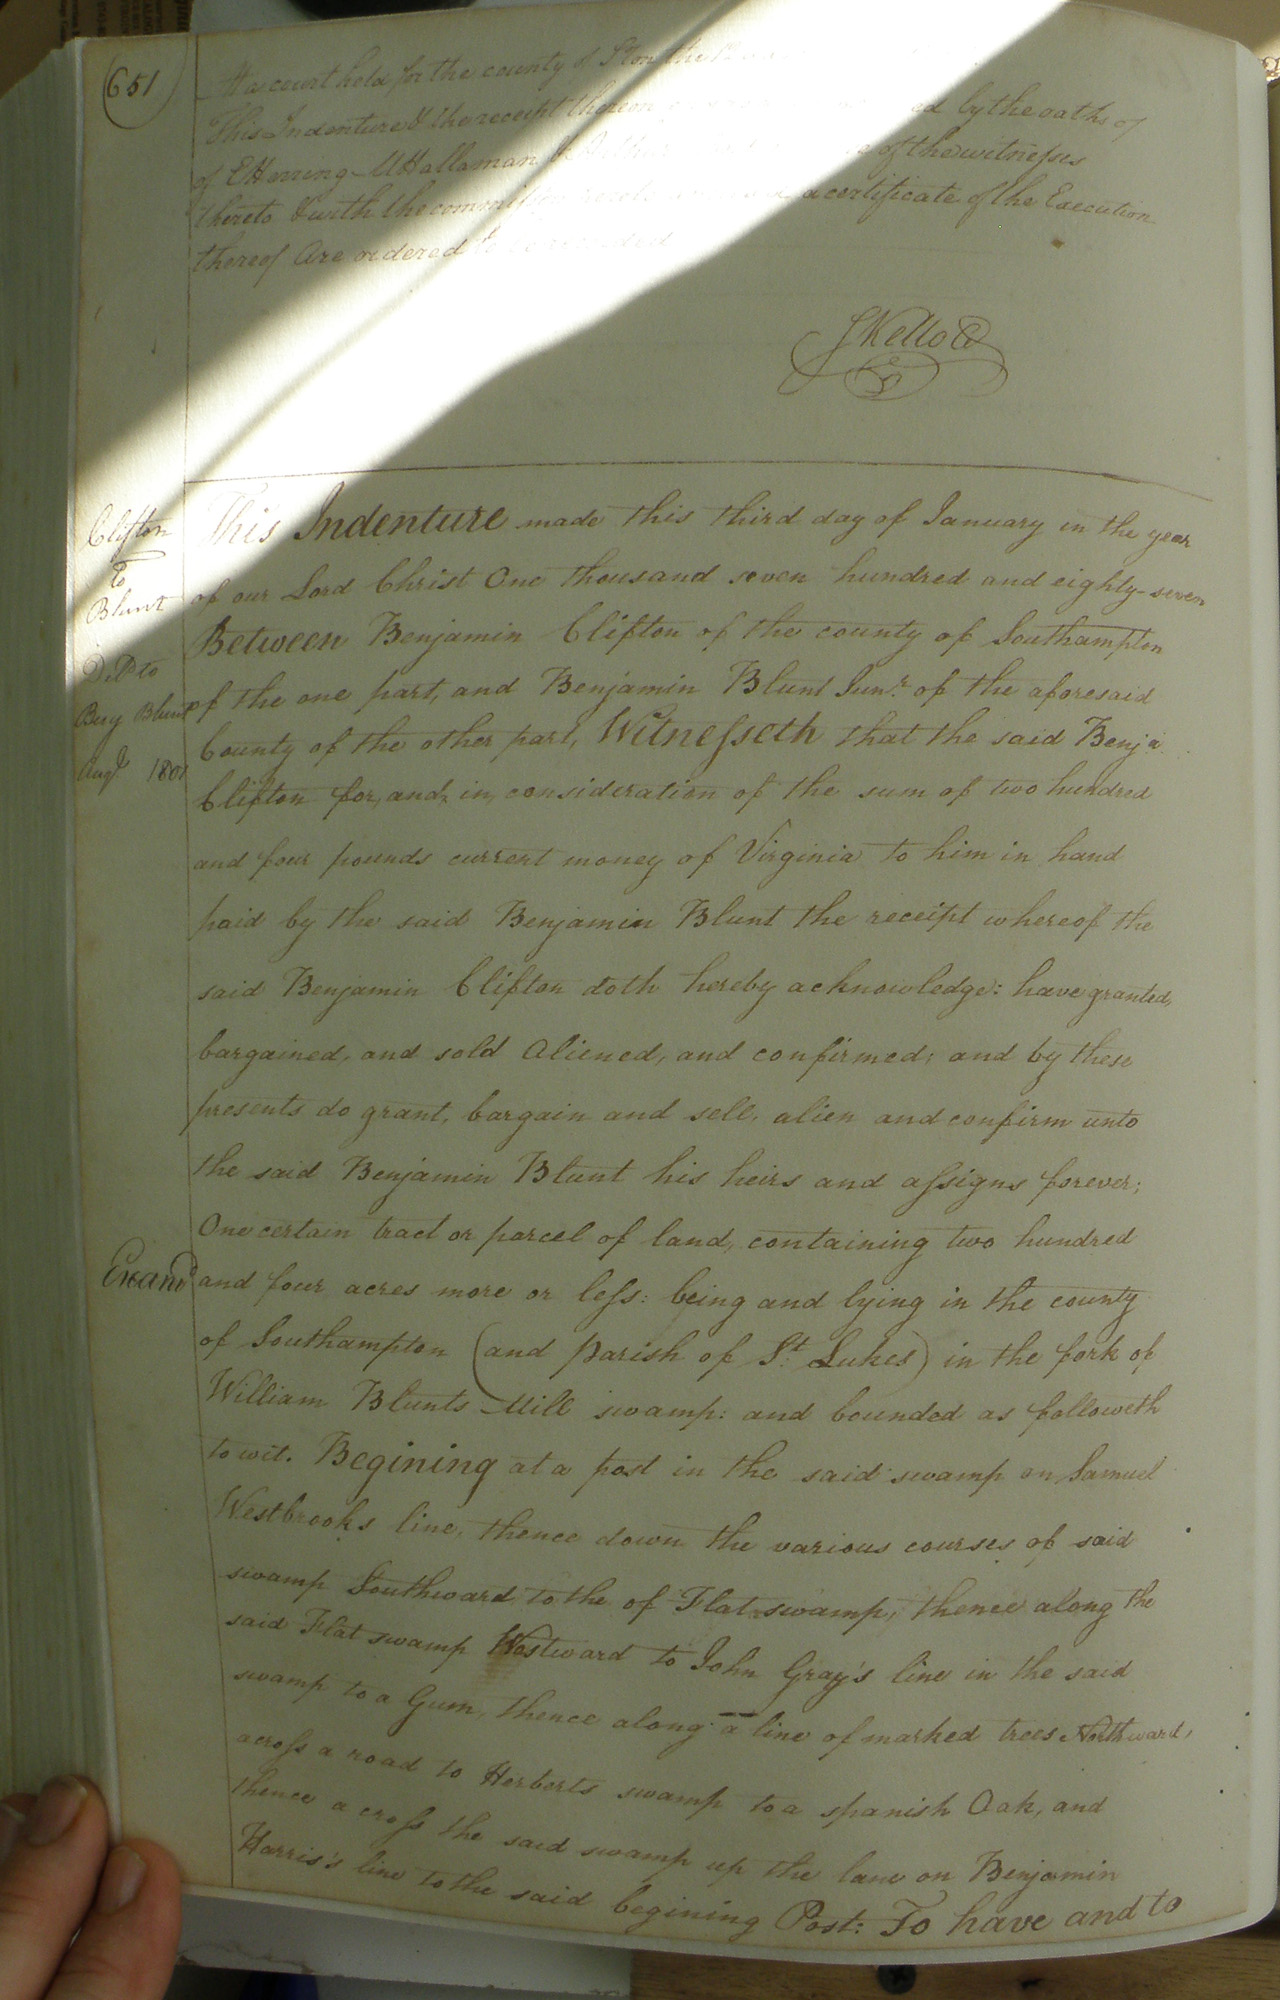 651
At a court held for the county of
This Indenture & the receipt thereon by the oaths of
of E Herring of the witnesses
thereto & with the a certificate of the Execution
thereof Are ordered
S Kello
Clifton
To
Blunt
to
Benj Blunt
Augt 1801
Examd
This Indenture made this third day of January in the year
of our Lord Christ One thousand seven hundred and eighty-seven
Between Benjamin Clifton of the county of Southampton
of the one part, and Benjamin Blunt Junr. of the aforesaid
County of the other part, Witnesseth that the said Benja
Clifton for, and, in, consideration of the sum of two hundred
and four pounds current money of Virginia to him in hand
paid by the said Benjamin Blunt the receipt whereof the
said Benjamin Clifton doth hereby acknowledge: have granted,
bargained, and sold Aliened, and confirmed; and by these
presents do grant, bargain and sell, alien and confirm unto
the said Benjamin Blunt his heirs and assigns forever;
One certain tract or parcel of land, containing two hundred
and four acres more or less: being and lying in the county
of Southampton (and parish of St. Lukes) in the fork of
William Blunts Mill swamp: and bounded as followeth
to wit. Begining at a post in the said swamp on Samuel
Westbrooks line, thence down the various courses of said
swamp Southward to the of Flat swamp; thence along the
said Flat swamp Westward to John Gray's line in the said
swamp to a Gum, thence along a line of marked trees Northward,
across a road to Herberts swamp to a spanish Oak, and
thence a cross the said swamp up the lane on Benjamin
Harris's line to the said begining Post: To have and to